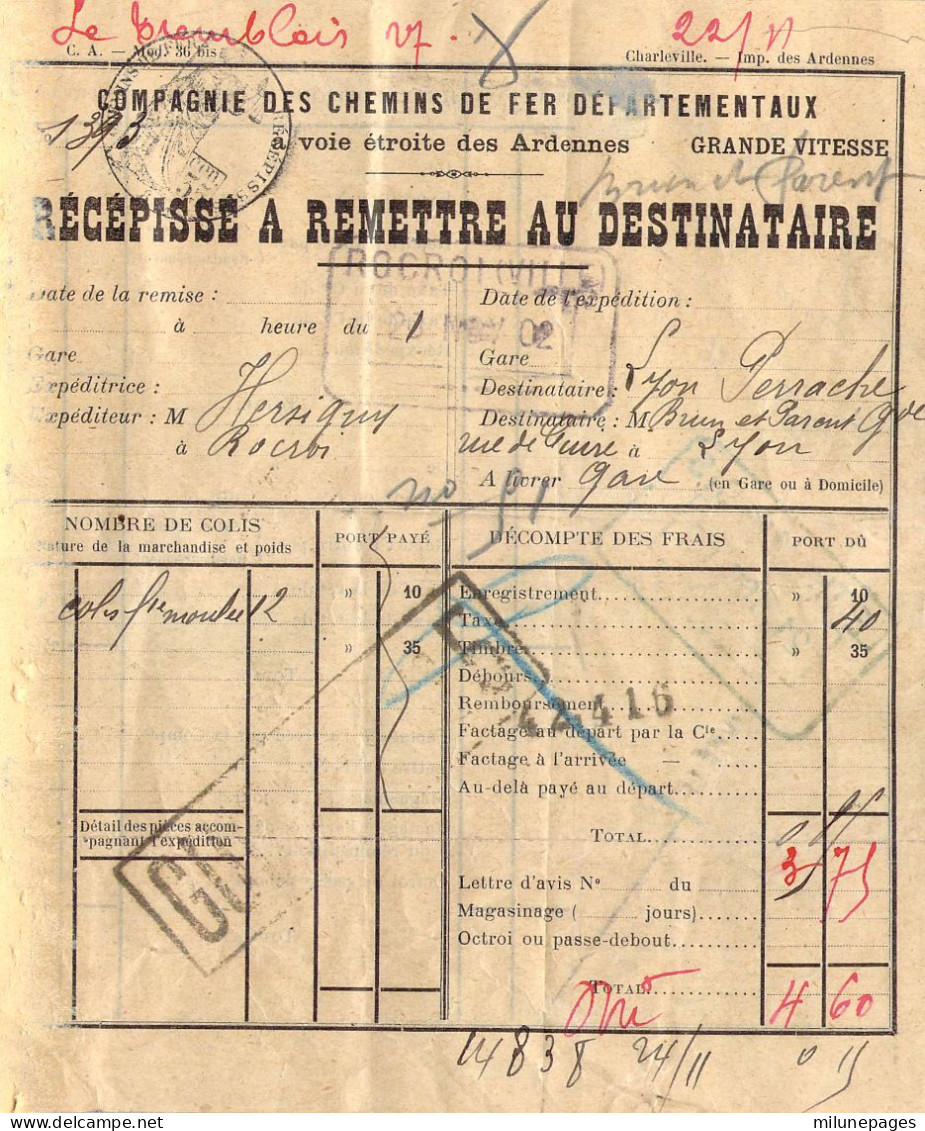 Le Tremblois 27 22/11
C. A. — Mod. 36 bis Charleville. — Imp. des Ardennes
COMPAGNIE DES CHEMINS DE FER DÉPARTEMENTAUX
1393
à voie étroite des Ardennes GRANDE VITESSE
Brun et Parent
RÉCÉPISSÉ A REMETTRE AU DESTINATAIRE
ROCROI (VILLE
02
Date de la remise : Date de l'expédition :
à heure du 1
Gare Gare
Expéditrice : Destinataire : Lyon Perrache
Expéditeur : M Hersigny Destinataire : M Brun et Parent
à Rocroi rue de à Lyon
A livrer Gare (en Gare ou à Domicile)
NOMBRE DE COLIS PORT PAYÉ DÉCOMPTE DES FRAIS PORT DÛ
Nature de la marchandise et poids
colis 2 » 10 Enregistrement » 10
Taxe 40
» 35 Timbre » 35
Débours
Remboursement
42416
Factage au départ par la Cie
Factage à l'arrivée —
Au-delà payé au départ
Détail des pièces accom-
pagnant l'expédition
TOTAL 0 85
Lettre d'avis N° du 3 75
Magasinage ( jours)
Octroi ou passe-debout
TOTAL 4 60
14838 24/11 0 15
milunepages